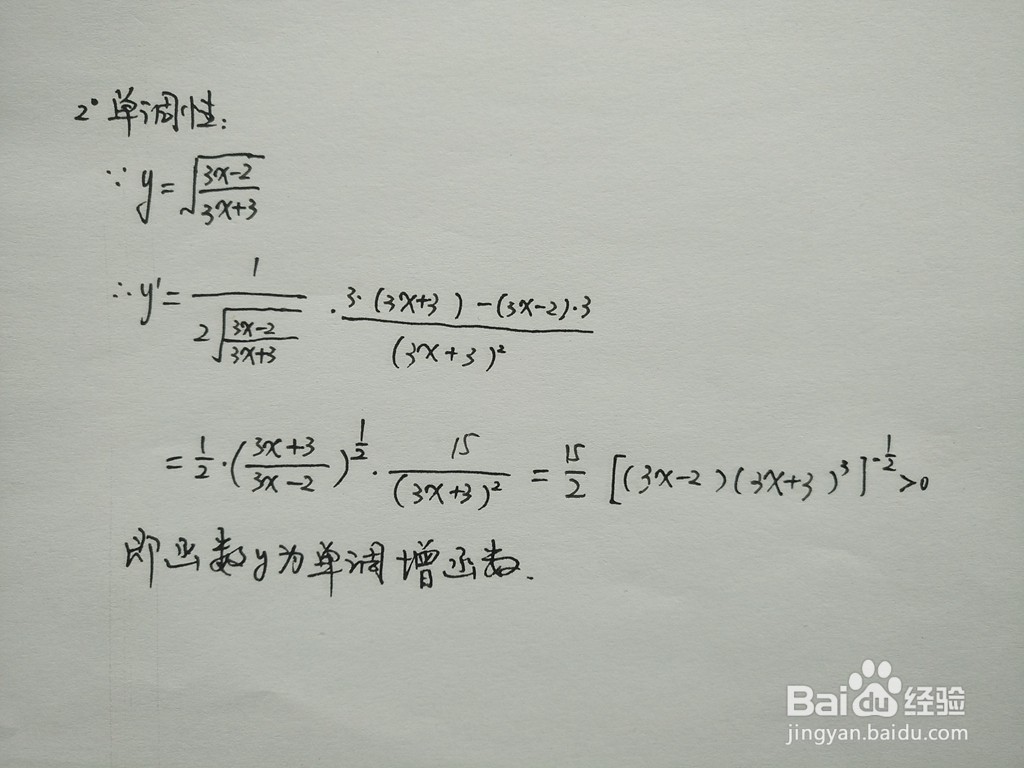 2° 单调性:
∵ y = √((3x-2)/(3x+3))
∴ y' = 1/(2√((3x-2)/(3x+3))) · (3·(3x+3)-(3x-2)·3)/(3x+3)²
= 1/2 · ((3x+3)/(3x-2))^(1/2) · 15/(3x+3)² = 15/2 [(3x-2)(3x+3)³]^(-1/2) >0
即函数y为单调增函数.
Baidu 经验
jingyan.baidu.com